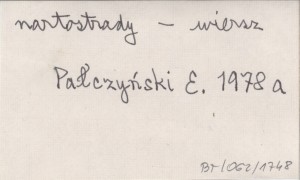 nartostrady - wiersz
Pałczyński E. 1978 a
BT/062/1748